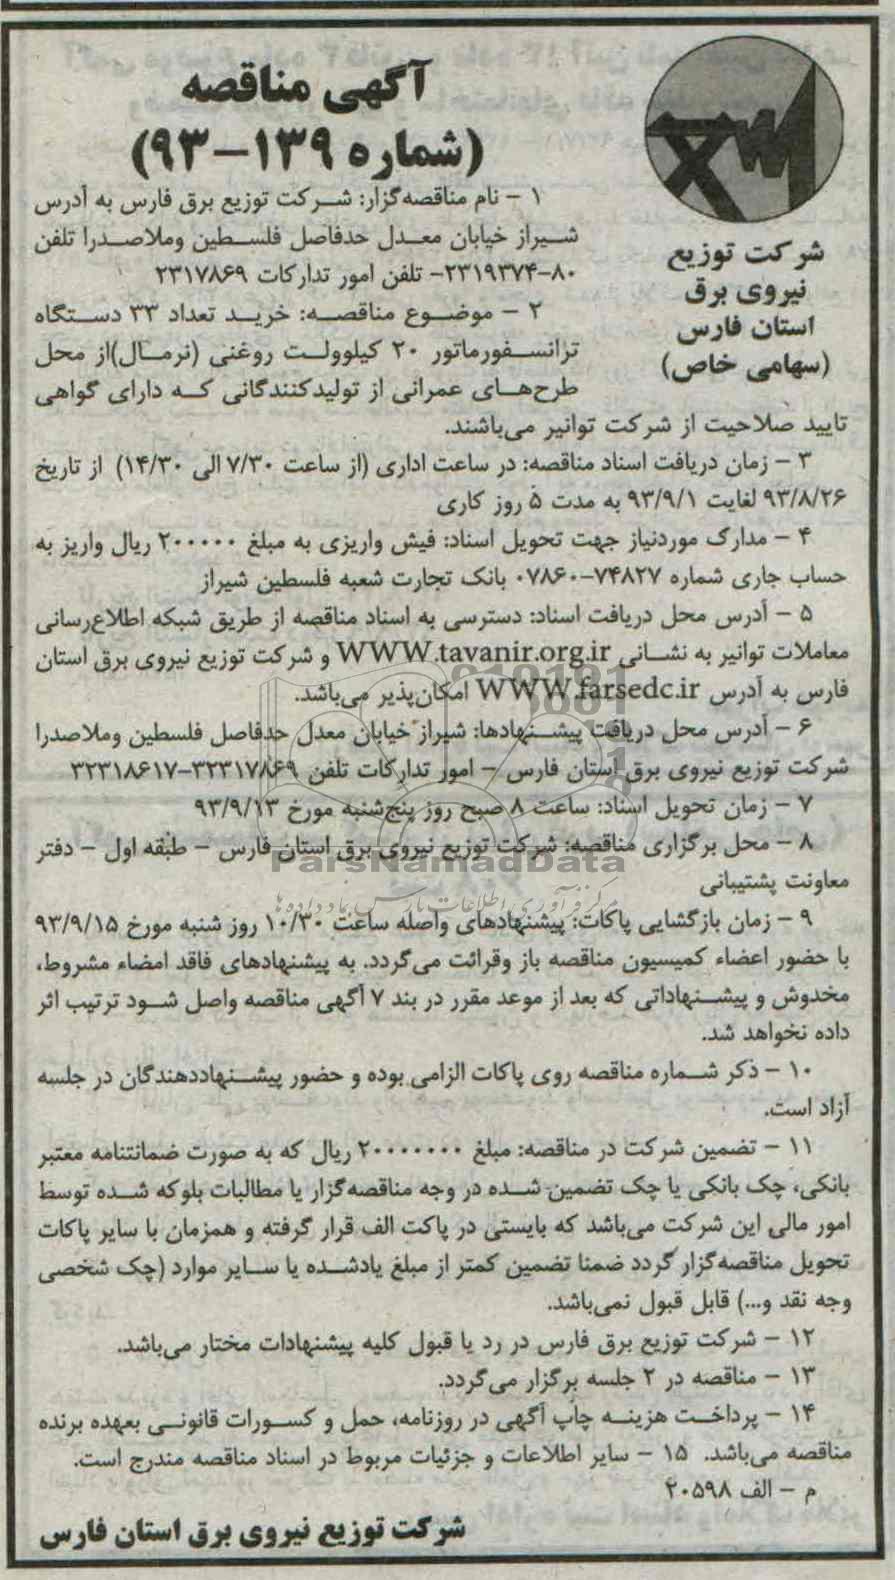 آگهی مناقصه
(شماره ۱۳۹-۹۳)
شرکت توزیع
نیروی برق
استان فارس
(سهامی خاص)
۱ - نام مناقصه‌گزار: شرکت توزیع برق فارس به آدرس
شیراز خیابان معدل حدفاصل فلسطین وملاصدرا تلفن
۸۰-۲۳۱۹۳۷۴- تلفن امور تدارکات ۲۳۱۷۸۶۹
۲ - موضوع مناقصه: خرید تعداد ۳۳ دستگاه
ترانسفورماتور ۲۰ کیلوولت روغنی (نرمال)از محل
طرح‌های عمرانی از تولیدکنندگانی که دارای گواهی
تایید صلاحیت از شرکت توانیر می‌باشند.
۳ - زمان دریافت اسناد مناقصه: در ساعت اداری (از ساعت ۷/۳۰ الی ۱۴/۳۰) از تاریخ
۹۳/۸/۲۶ لغایت ۹۳/۹/۱ به مدت ۵ روز کاری
۴ - مدارک موردنیاز جهت تحویل اسناد: فیش واریزی به مبلغ ۲۰۰۰۰۰ ریال واریز به
حساب جاری شماره ۷۴۸۲۷-۰۷۸۶۰ بانک تجارت شعبه فلسطین شیراز
۵ - آدرس محل دریافت اسناد: دسترسی به اسناد مناقصه از طریق شبکه اطلاع‌رسانی
معاملات توانیر به نشانی WWW.tavanir.org.ir و شرکت توزیع نیروی برق استان
فارس به آدرس WWW.farsedc.ir امکان‌پذیر می‌باشد.
۶ - آدرس محل دریافت پیشنهادها: شیراز خیابان معدل حدفاصل فلسطین وملاصدرا
شرکت توزیع نیروی برق استان فارس - امور تدارکات تلفن ۳۲۳۱۷۸۶۹-۳۲۳۱۸۶۱۷
۷ - زمان تحویل اسناد: ساعت ۸ صبح روز پنج‌شنبه مورخ ۹۳/۹/۱۳
۸ - محل برگزاری مناقصه: شرکت توزیع نیروی برق استان فارس - طبقه اول - دفتر
ParsNamadData
معاونت پشتیبانی
مرکز فرآوری اطلاعات پارس نماد داده‌ها
۹ - زمان بازگشایی پاکات: پیشنهادهای واصله ساعت ۱۰/۳۰ روز شنبه مورخ ۹۳/۹/۱۵
با حضور اعضاء کمیسیون مناقصه باز وقرائت می‌گردد. به پیشنهادهای فاقد امضاء مشروط،
مخدوش و پیشنهاداتی که بعد از موعد مقرر در بند ۷ آگهی مناقصه واصل شود ترتیب اثر
داده نخواهد شد.
۱۰ - ذکر شماره مناقصه روی پاکات الزامی بوده و حضور پیشنهاددهندگان در جلسه
آزاد است.
۱۱ - تضمین شرکت در مناقصه: مبلغ ۲۰۰۰۰۰۰۰ ریال که به صورت ضمانتنامه معتبر
بانکی، چک بانکی یا چک تضمین شده در وجه مناقصه‌گزار یا مطالبات بلوکه شده توسط
امور مالی این شرکت می‌باشد که بایستی در پاکت الف قرار گرفته و همزمان با سایر پاکات
تحویل مناقصه‌گزار گردد ضمنا تضمین کمتر از مبلغ یادشده یا سایر موارد (چک شخصی
وجه نقد و...) قابل قبول نمی‌باشد.
۱۲ - شرکت توزیع برق فارس در رد یا قبول کلیه پیشنهادات مختار می‌باشد.
۱۳ - مناقصه در ۲ جلسه برگزار می‌گردد.
۱۴ - پرداخت هزینه چاپ آگهی در روزنامه، حمل و کسورات قانونی بعهده برنده
مناقصه می‌باشد. ۱۵ - سایر اطلاعات و جزئیات مربوط در اسناد مناقصه مندرج است.
م - الف ۲۰۵۹۸
شرکت توزیع نیروی برق استان فارس